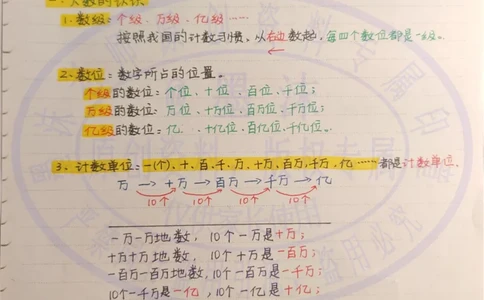 一、大数的认识
1. 数级：个级、万级、亿级……
按照我国的计数习惯，从右边数起，每四个数位都是一级。
2. 数位：数字所占的位置。
个级的数位：个位、十位、百位、千位；
万级的数位：万位、十万位、百万位、千万位；
亿级的数位：亿..十亿位、百亿位、千亿位..
3. 计数单位：一(个)、十、百、千、万、十万、百万、千万、亿……都是计数单位。
万→十万→百万→千万→亿
10个 10个 10个 10个
一万一万地数，10个一万是十万；
十万十万地数，10个十万是一百万；
一百万一百万地数，10个一百万是一千万；
10个一千万是一亿，10个一亿是十亿；